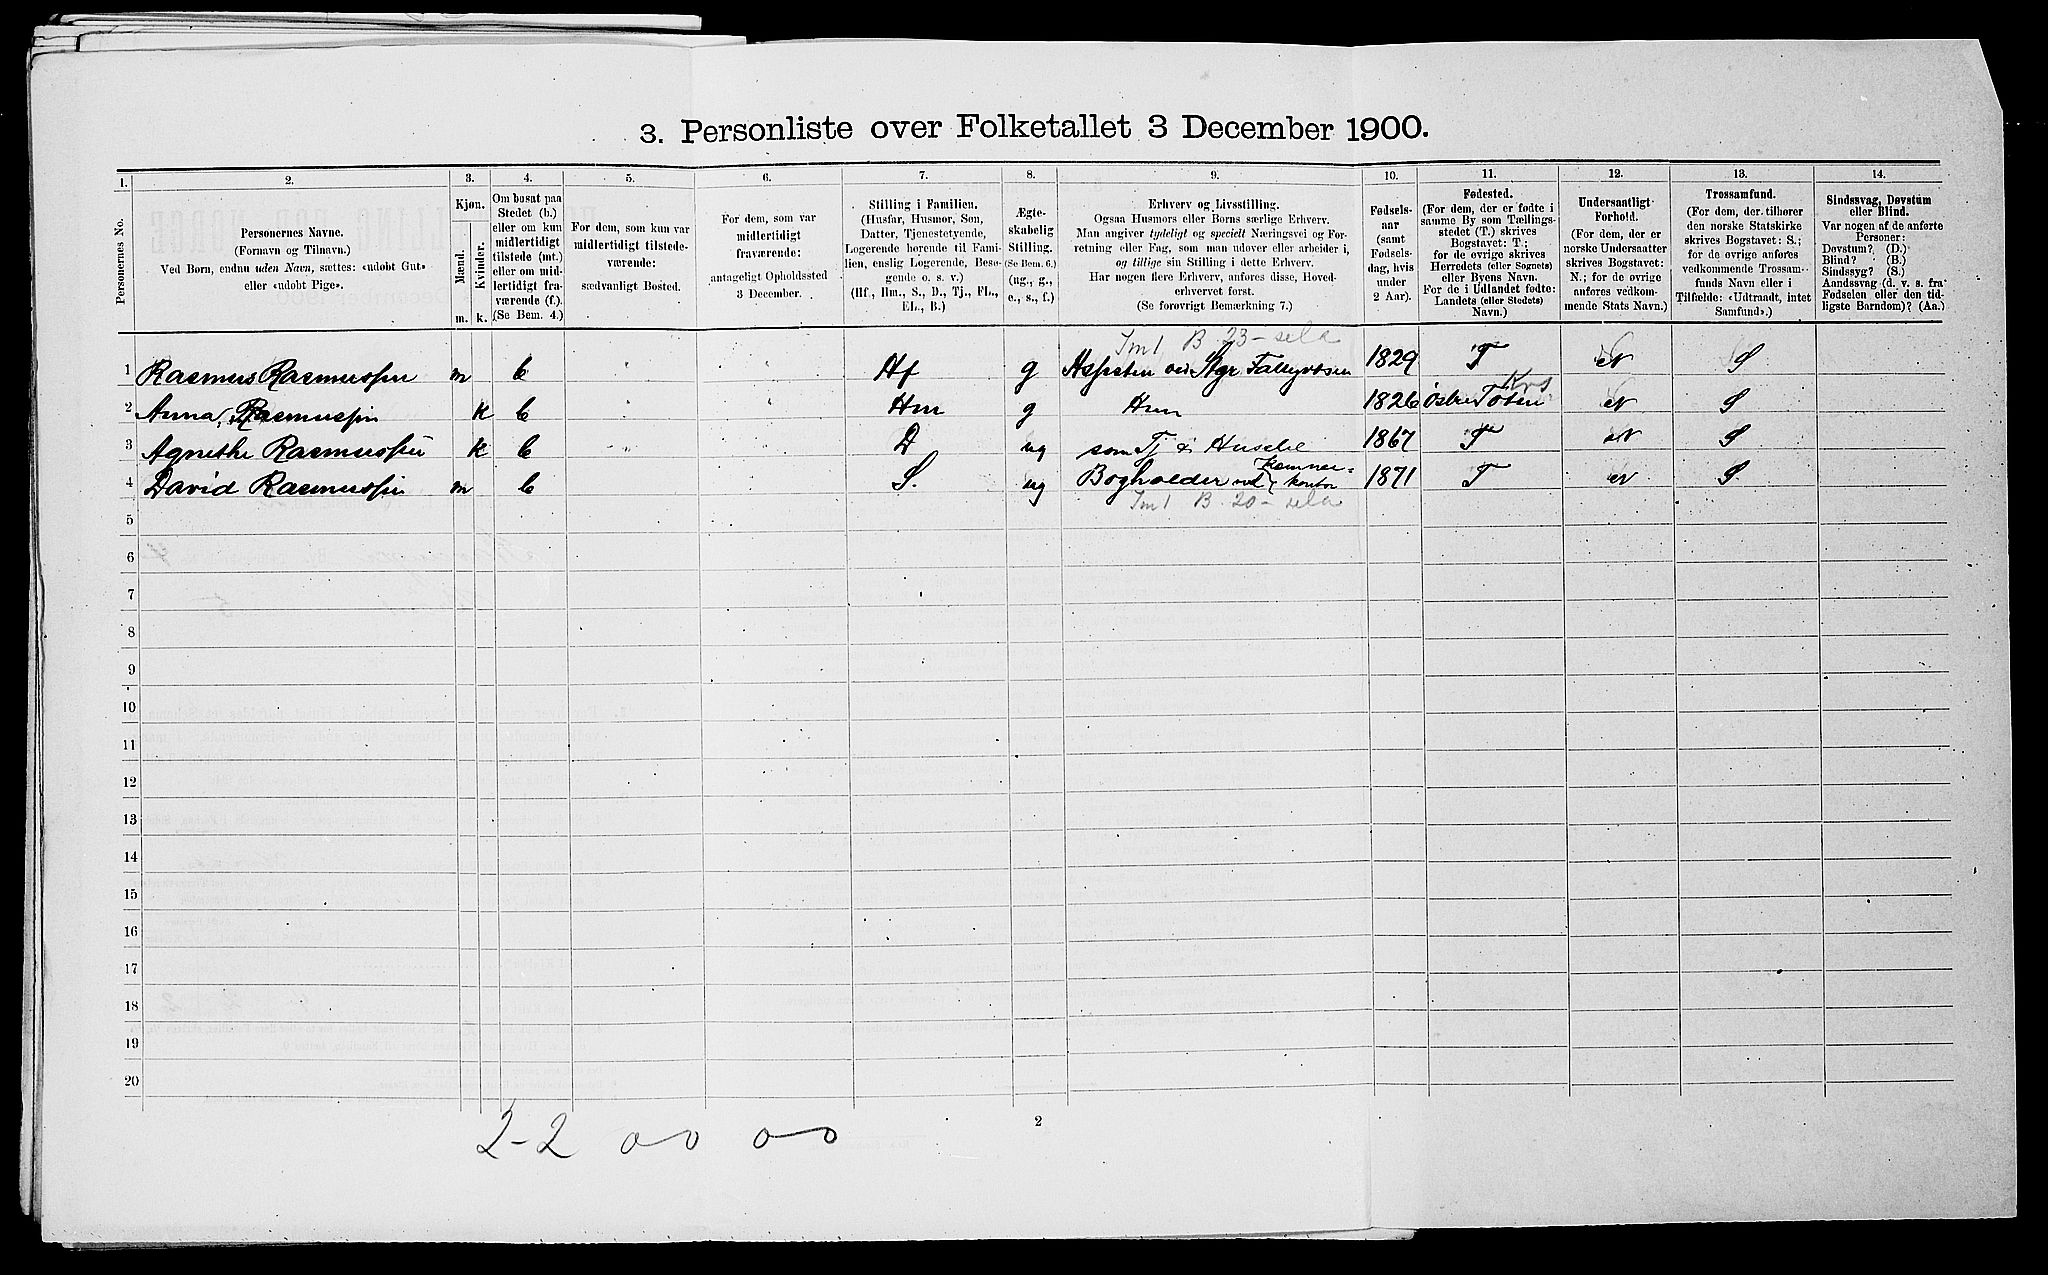 3. Personliste over Folketallet 3 December 1900.
1.
2.
3.
4.
5.
6.
7.
8.
9.
10.
11.
12.
13.
14.
Personernes No.
Personernes Navne.
(Fornavn og Tilnavn.)
Ved Børn, endnu uden Navn, sættes: «udøbt Gut»
eller «udøbt Pige».
Kjøn.
Mænd.
Kvinder.
m.
k.
Om bosat paa
Stedet (b.)
eller om kun
midlertidigt
tilstede (mt.)
eller om mid-
lertidigt fra-
værende (f.).
(Se Bem. 4.)
For dem, som kun var
midlertidigt tilstede-
værende:
sædvanligt Bosted.
For dem, som var
midlertidigt
fraværende:
antageligt Opholdssted
3 December.
Stilling i Familien.
(Husfar, Husmor, Søn,
Datter, Tjenestetyende,
Logerende hørende til Fami-
lien, enslig Logerende, Besø-
gende o. s. v.)
(Hf., Hm., S., D., Tj., FL.,
EL., B.)
Ægte-
skabelig
Stilling.
(Se Bem. 6.)
(ug., g.,
e., s., f.)
Erhverv og Livsstilling.
Ogsaa Husmors eller Børns særlige Erhverv.
Man angiver tydeligt og specielt Næringsvei og For-
retning eller Fag, som man udøver eller arbeider i,
og tillige sin Stilling i dette Erhverv.
Har nogen flere Erhverv, anføres disse, Hoved-
erhvervet først.
(Se forøvrigt Bemærkning 7.)
Fødsels-
aar
(samt
Fødsels-
dag, hvis
under
2 Aar).
Fødested.
(For dem, der er fødte i
samme By som Tællings-
stedet (T.) skrives
Bogstavet: T.;
for de øvrige skrives
Herredets (eller Sognets)
eller Byens Navn.
For de i Udlandet fødte:
Landets (eller Stedets)
Navn.)
Undersaatligt
Forhold.
(For dem, der er
norske Undersaatter
skrives Bogstavet:
N.; for de øvrige
anføres vedkom-
mende Stats Navn.)
Trossamfund.
(For dem, der tilhører
den norske Statskirke
skrives Bogstavet: S.;
for de øvrige anføres
vedkommende Trossam-
funds Navn eller i
Tilfælde: «Udtraadt, intet
Samfund».)
Sindssvag, Døvstum
eller Blind.
Var nogen af de anførte
Personer:
Døvstum? (D.)
Blind? (B.)
Sindssyg? (S.)
Aandssvag (d. v. s. fra
Fødselen eller den tid-
ligste Barndom)? (Aa.)
B 23 -
1 Rasmus Rasmussen m b Hf g 1829 T N S
Krs
2 Anna Rasmussen k b Hm g Hm 1826 Østre Toten N S
3 Agnethe Rasmussen k b D ug som Tj i Huset 1867 T N S
4 David Rasmussen m b S. ug Bogholder ved Kemner- kontor 1871 T N S.
B. 20 -
5
6
7
8
9
10
11
12
13
14
15
16
17
18
19
20
2
2-2 0 0 0 0